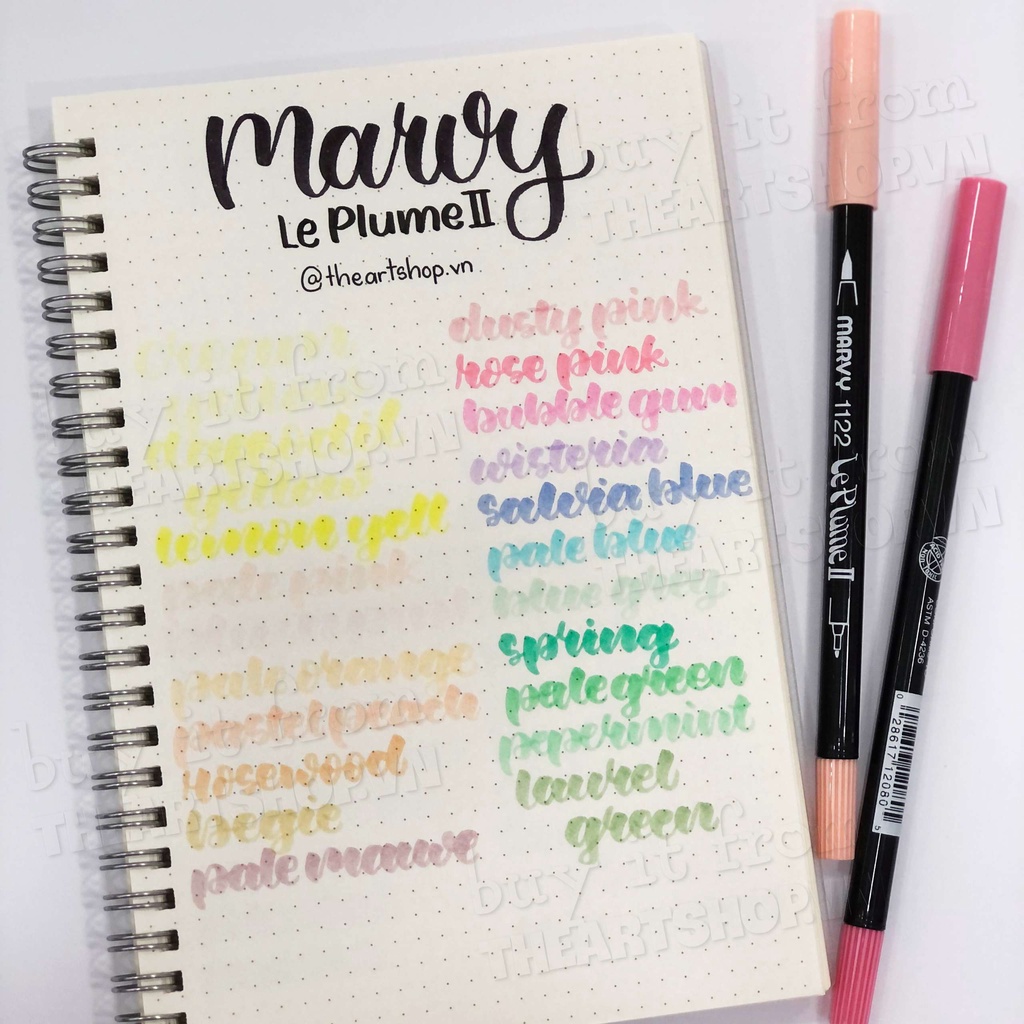 Marvy
Le Plume II
@theartshop.vn
daffodil
yellow
lemon yell
pale pink
pale orange
pastel peach
rosewood
begie
pale mauve
dusty pink
rose pink
bubble gum
wisteria
salvia blue
pale blue
blue grey
spring
pale green
pepermint
laurel
green
MARVY 1122 Le Plume II
ASTM D-4236
0 28617 12080 5
buy it from
THEARTSHOP.VN
buy it from
THEARTSHOP.VN
buy it from
THEARTSHOP.VN
buy it from
THEARTSHOP.VN
buy it from
THEARTSHOP.VN